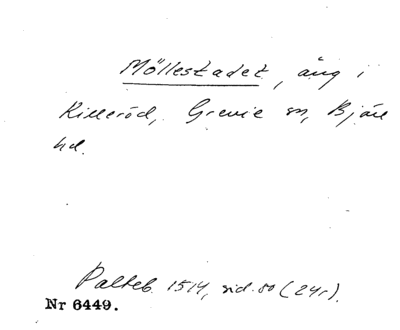 Möllestadet, äng i
Killeröd, Grevie sn, Bjäre
hd.
Palteb. 1514, sid. 50 (24r).
Nr 6449.